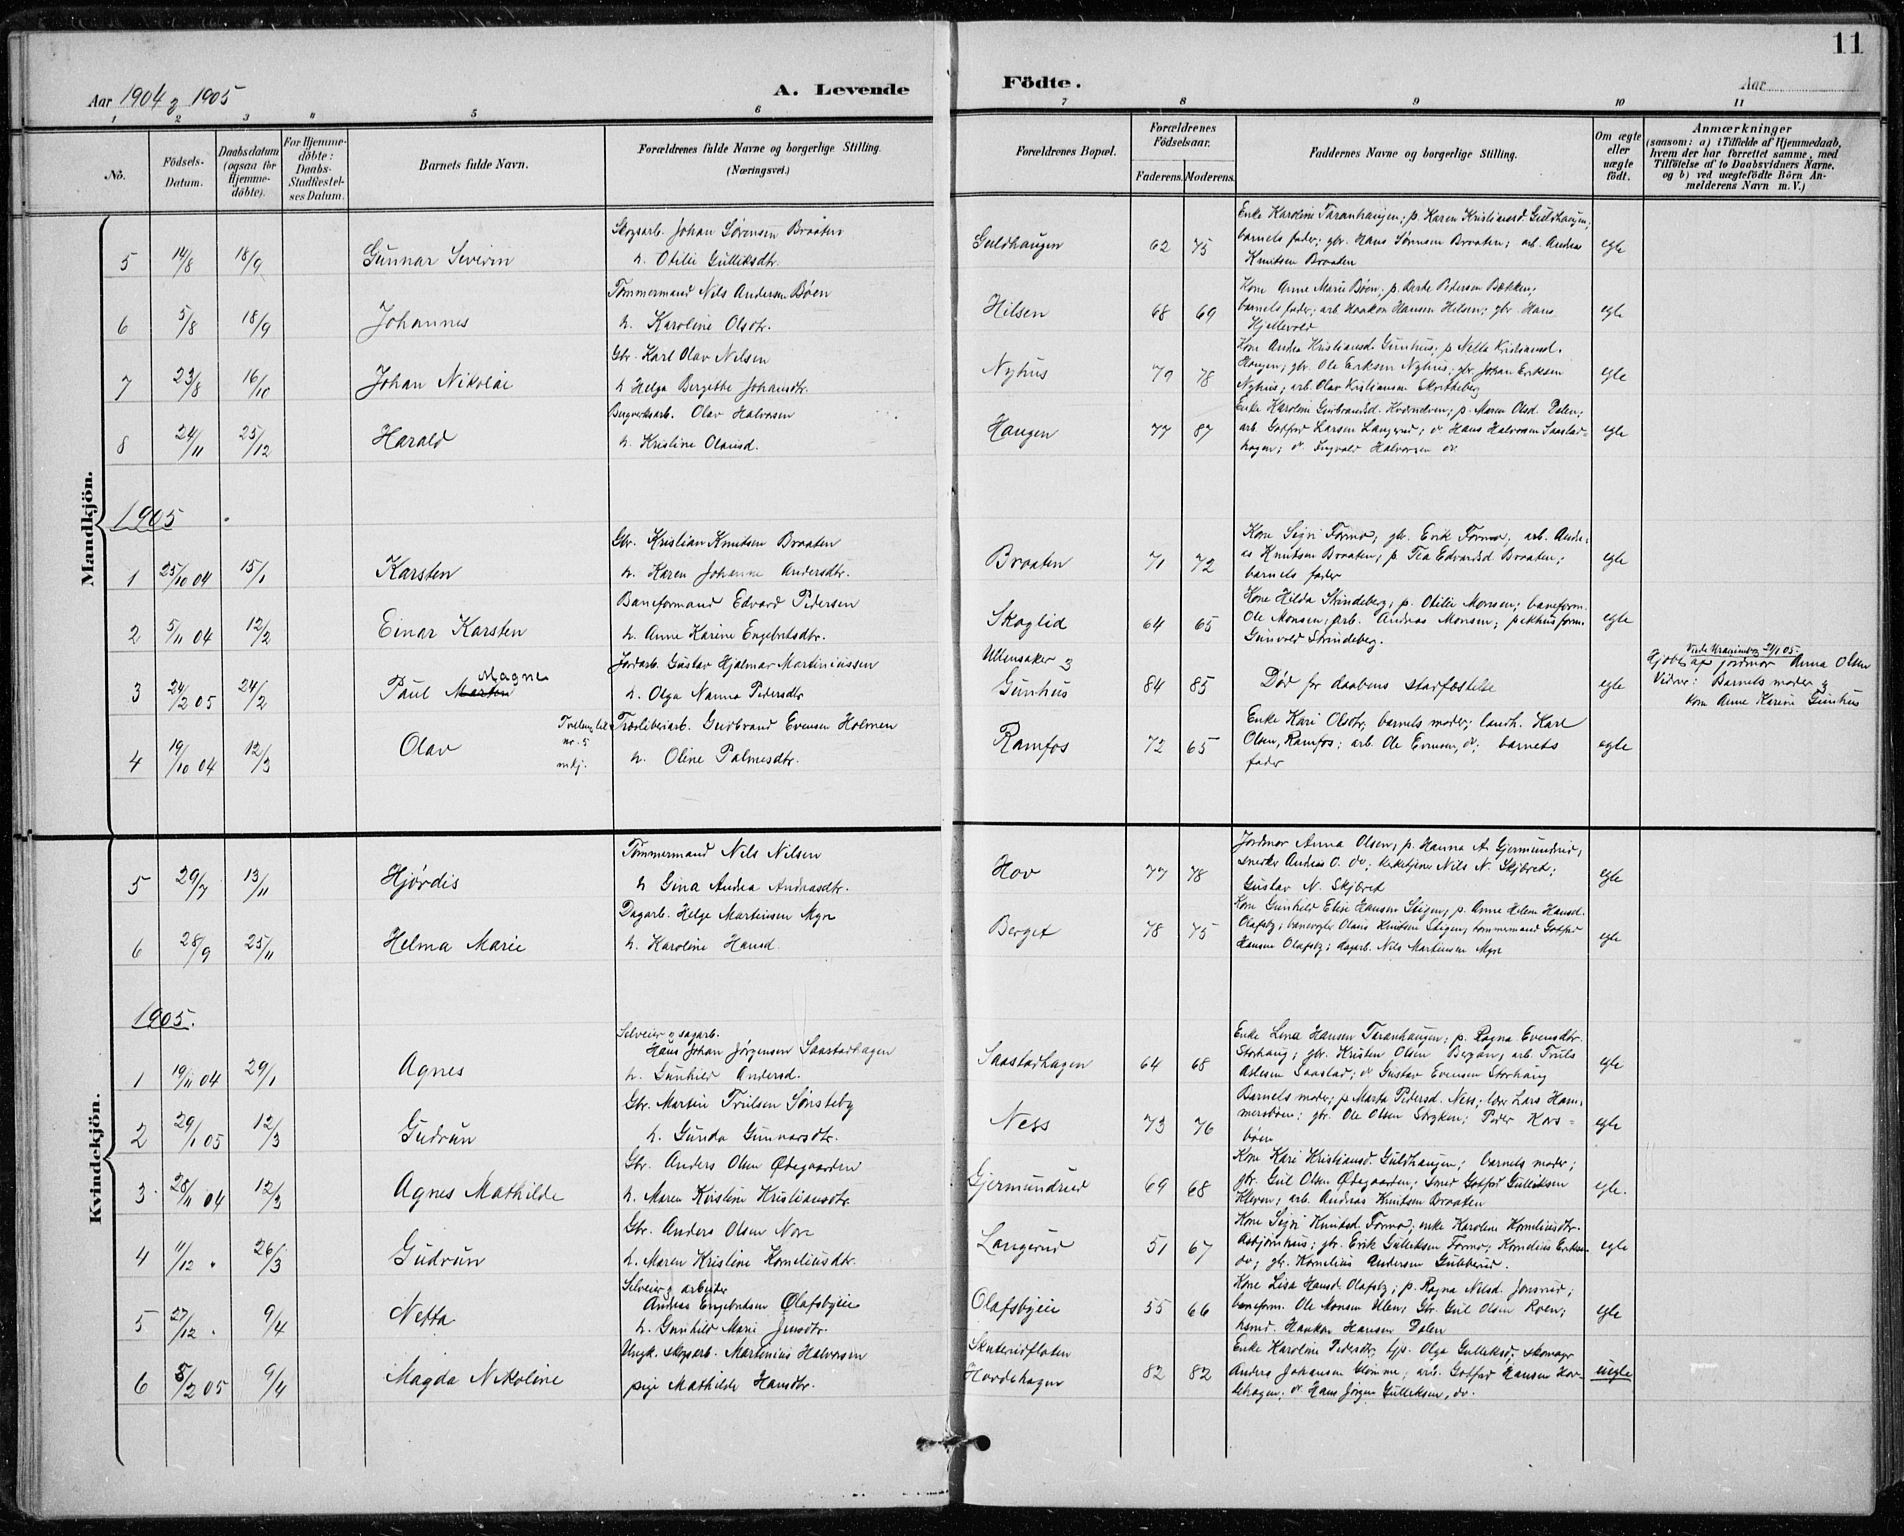 11
Aar 1904 og 1905
A. Levende Födte.
Aar
1 2 3 4 5 6 7 8 9 10 11
No.
Födsels-Datum.
Daabsdatum (ogsaa for Hjemme-döbte).
For Hjemme-döbte: Daabs-Stadfestel-ses Datum.
Barnets fulde Navn.
Forældrenes fulde Navne og borgerlige Stilling. (Næringsvei.)
Forældrenes Bopæl.
Forældrenes Födselsaar.
Faderens. Moderens.
Faddernes Navne og borgerlige Stilling.
Om ægte eller uægte födt.
Anmærkninger
(saasom: a) i Tilfælde af Hjemmedaab, hvem der har forrettet samme, med Tilföielse af to Daabsvidners Navne. og b) ved uægtefödte Börn An-melderens Navn m. V.)
Mandkjön.
5 14/8 18/9 Gunnar Severin
Skogsarb. Johan Sørensen Braaten
h. Otilie Gulliksdtr.
Guldhaugen 62 75
Enke Karoline Taranhaugen; p. Karen Kristiansd Guldhaugen;
barnets fader; gbr. Hans Sørensen Braaten; arb. Andreas
Knutsen Braaten
egte
6 5/8 18/9 Johannes
Tømmermand Nils Andersen Bøen
h. Karoline Olsdtr.
Hilsen 68 69
Kone Anne Marie Bøen; p. Berte Pedersen Bækken;
barnets fader; arb. Haakon Hansen Hilsen; gbr. Hans
Hjellevold
egte
7 23/8 16/10 Johan Nikolai
Gbr. Karl Olav Nelsen
h. Helga Bergette Johansdtr.
Nyhus 79 78
Kone Andrea Kristiansd. Gunhus; p. Netta Kristiansd.
Haugen; gbr. Ole Eriksen Nyhus; gbr. Johan Eriksen
Nyhus; arb. Olav Kristiansen Skrindeberg
egte
8 24/11 25/12 Harald
Bergverksarb. Olav Halvorsen
h. Kristine Olausd.
Haugen 77 87
Enke Karoline Gudbrandsd. Kvernelven; p. Maren Olsd. Dalen;
arb. Gotfred Larsen Langerud; do Hans Halvorsen Saastad-
hagen; do. Ingvald Halvorsen do
egte
1905
1 25/10 04 15/1 Karsten
Gbr. Kristian Knutsen Braaten
h. Karen Johanne Andersdtr.
Braaten 71 72
Kone Sigri Formo; gbr. Erik Formo, arb. Andre-
as Knutsen Braaten; p. Tea Edvardsd Braaten;
barnets fader
egte
2 5/11 04 12/2 Einar Karsten
Baneformand Edvard Pedersen
h. Anne Karine Engebretsdtr.
Skoglid 64 65
Kone Hilda Strindeberg; p. Otilie Monsen; baneform.
Ole Monsen; arb. Andreas Monsen; pakhusform.
Gunvald Strindeberg.
egte
3 24/2 05 24/2 Paul Martin Magne
Jordarb. Gustav Hjalmar Martiniussen
h. Olga Nanna Pedersdtr
Ullensaker og
Gunhus 84 85
Død før daabens stadfæstelse
egte
Hjdøbt af jordmor Anna Olsen
Vidner: Barnets moder og
kone Anne Karine Gunhus
4 19/10 04 12/3 Olav
Tvilling til
nr. 5
mkj.
Træsliberiarb. Gudbrand Evensen Holmen
h. Oline Palmesdtr.
Ramfos 72 65
Enke Kari Olsdtr, barnets moder; landh. Karl
Olsen, Ramfos; arb. Ole Evensen, do; barnets
fader
egte
Kvindekjön.
5 29/7 13/11 Hjørdis
Tømmermand Nels Nilsen
h Gina Andrea Andreasdtr.
Hov 77 78
Jordmor Anna Olsen, p. Hanna A. Gjermundrud;
snedker Andreas O. do; kirketjener Nils N. Skjøret;
Gustav N. Skjøret
egte
6 28/9 25/11 Helma Marie
Dagarb. Helge Martinsen Myr
h. Karoline Hansd.
Berget 78 75
Kone Gunhild Elise Hansen Stigen; p. Anne Helene Hansd.
Olafsby; banevogter Olaus Knutsen Stigen; tømmermand Gotfred
Hansen Olafsby; dagarb. Nils Martinsen Myr
egte
1905.
1 19/11 04 29/1 Agnes
Selveier og sagarb.
Hans Johan Jørgensen Saastadhagen
h. Gunhild Andersd.
Saastadhagen 64 68
Enke Lina Hansen Taranhaugen; p. Ragna Evensdtr.
Storhaug; gbr. Kristen Olsen Bergan; arb. Truls
Aslesen Saastad; do Gustav Evensen Storhaug
egte
2 29/1 05 12/3 Gudrun
Gbr. Martin Trulsen Sønsteby
h. Gunda Gunnarsdtr.
Ness 73 76
Barnets moder; p. Marta Pedersd. Ness; lær Lars Ham-
mersbøen; gbr. Ole Olsen Stryken; Peder Kors-
bøen
egte
3 28/11 04 12/3 Agnes Mathilde
Gbr. Anders Olsen Ødegaarden
h. Maren Kirstine Kristiansdtr.
Gjermundrud 69 68
Kone Kari Kristiansd. Guldhaugen; barnets moder;
gbr. Gul Olsen Ødegaarden; Smed Gotfred Gulliksen
Kleven; arb. Andreas Knutsen Braaten
egte.
4 11/12 " 26/3 Gudrun
Gbr. Anders Olsen Nore
h. Maren Kristine Korneliusdtr.
Langerud 51 67
Kone Sigri Knutsd. Formo; enke Karoline Korneliusdtr.
Asbjørnhus; gbr. Erik Gulliksen Formo; Kornelius Eriksen
do; gbr. Kornelius Andersen Gubberud.
egte
5 27/12 " 9/4 Netta
Selveier og arbeider
Andreas Engebretsen Olafsbyeie
h. Gunhild Marie Jensdtr.
Olafsbyeie 55 66
Kone Lisa Hansd. Olafsby; p. Ragna Nilsd. Jonsrud;
baneform. Ole Monsen Ulen; Gbr. Gul Olsen Roen;
Haakon Hansen Dalen
egte
6 5/2 05 9/4 Magda Nikoline
Ungk. skogsarb. Martinius Halvorsen
pige Mathilde Hansdtr.
Skuterudfloten
Hordehagen 82 82
Enke Karoline Pedersdtr, tjp. Olga Gulliksd; skomager
Anders Johansen Glomme; arb. Gotfred Hansen Hor-
dehagen; do Hans Jørgen Gulliksen, do.
uegte